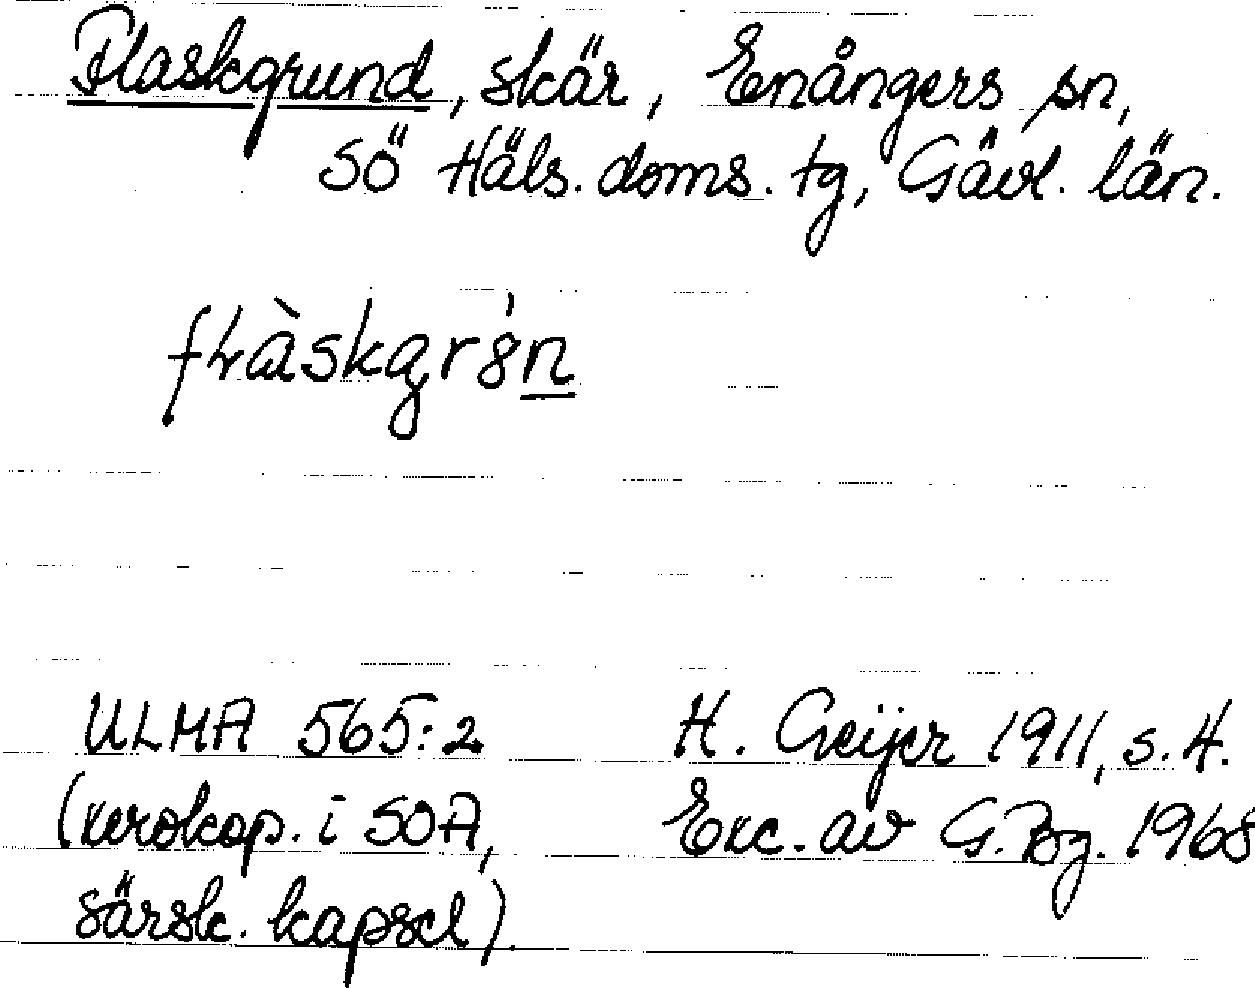 Flaskgrund, skär, Enångers sn,
Sö Häls. doms. tg, Gävl. län.
ULMA 565:2
(xerokop. i SOA,
särsk. kapsel).
H. Geijer 1911, s. 4.
Exc. av G. Bg. 1968